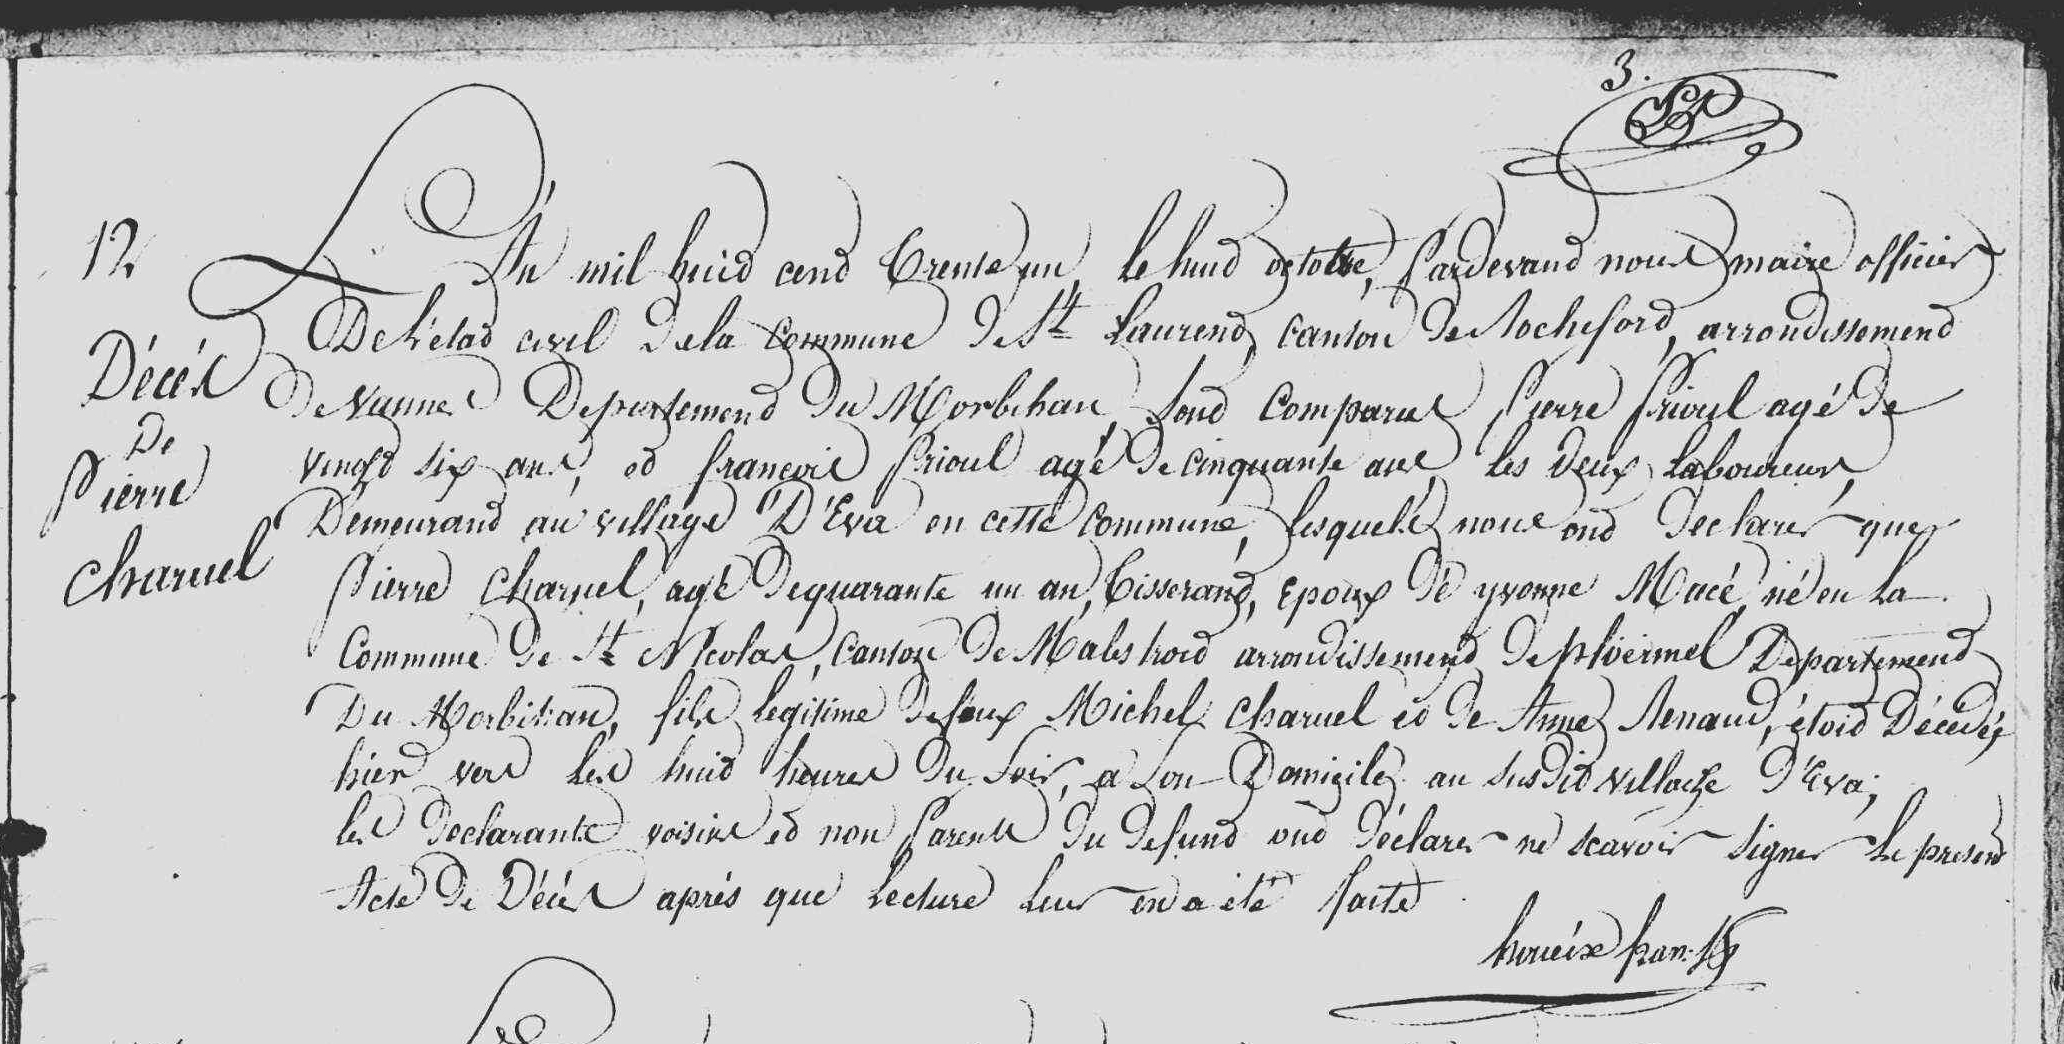 3.
12
Décés
De
Pierre
charuel
L'An mil huit cent trente un, le huit octobre, Pardevant nous maire officier
De l'état civil De la Commune de St Laurent, canton de Rochefort, arrondissement
de vannes Departement du Morbihan, Sont Comparus Pierre Prioul agé de
vingt six ans, et françois Prioul agé de cinquante ans, les deux Laboureurs,
Demeurant au village D'Eva en cette commune, lesquels nous ont declarer que
Pierre Charuel, agé de quarante un an, tisserand, epoux de yvonne Macé, né en la
Commune de St Nicolas, canton de Malestroit arrondissement de ploërmel Departement
Du Morbihan, fils legitime de feux Michel Charuel et de Anne Renaud, étoit Décedé
hier vers les huit heures du Soir, a Son Domicile au susdit village d'Eva;
les declarants voisins et non Parents du defunt ont déclarer ne scavoir signer le present
Acte de Décés aprés que Lecture leur en a eté faite
houéix fran.